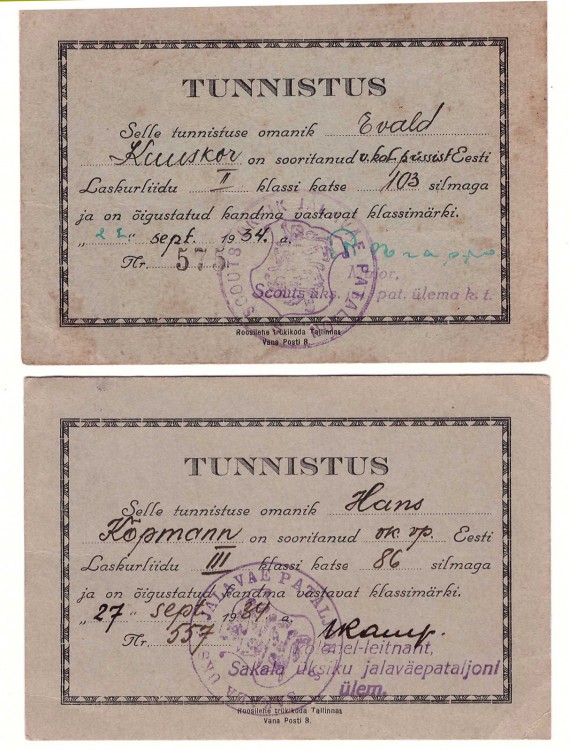 TUNNISTUS
Selle tunnistuse omanik Evald
Kuuskor on sooritanud v.kal. püssist Eesti
Laskurliidu II klassi katse 103 silmaga
ja on õigustatud kandma vastavat klassimärki.
"21." sept. 1934. a.
Nr. 575
Major,
Scouts üks. jal. pat. ülema k. t.
SCOUTS ÜKSIK JALAVÄE PATALJON
Roosilehe trükikoda Tallinnas
Vana Posti 8.
TUNNISTUS
Selle tunnistuse omanik Hans
Kõpmann on sooritanud vk. vp. Eesti
Laskurliidu III klassi katse 86 silmaga
ja on õigustatud kandma vastavat klassimärki.
"27" sept. 1934 a.
Nr. 557
Kolonel-leitnant,
Sakala üksiku jalaväepataljoni
ülem.
SAKALA ÜKSIK JALAVÄE PATALJON
Roosilehe trükikoda Tallinnas
Vana Posti 8.